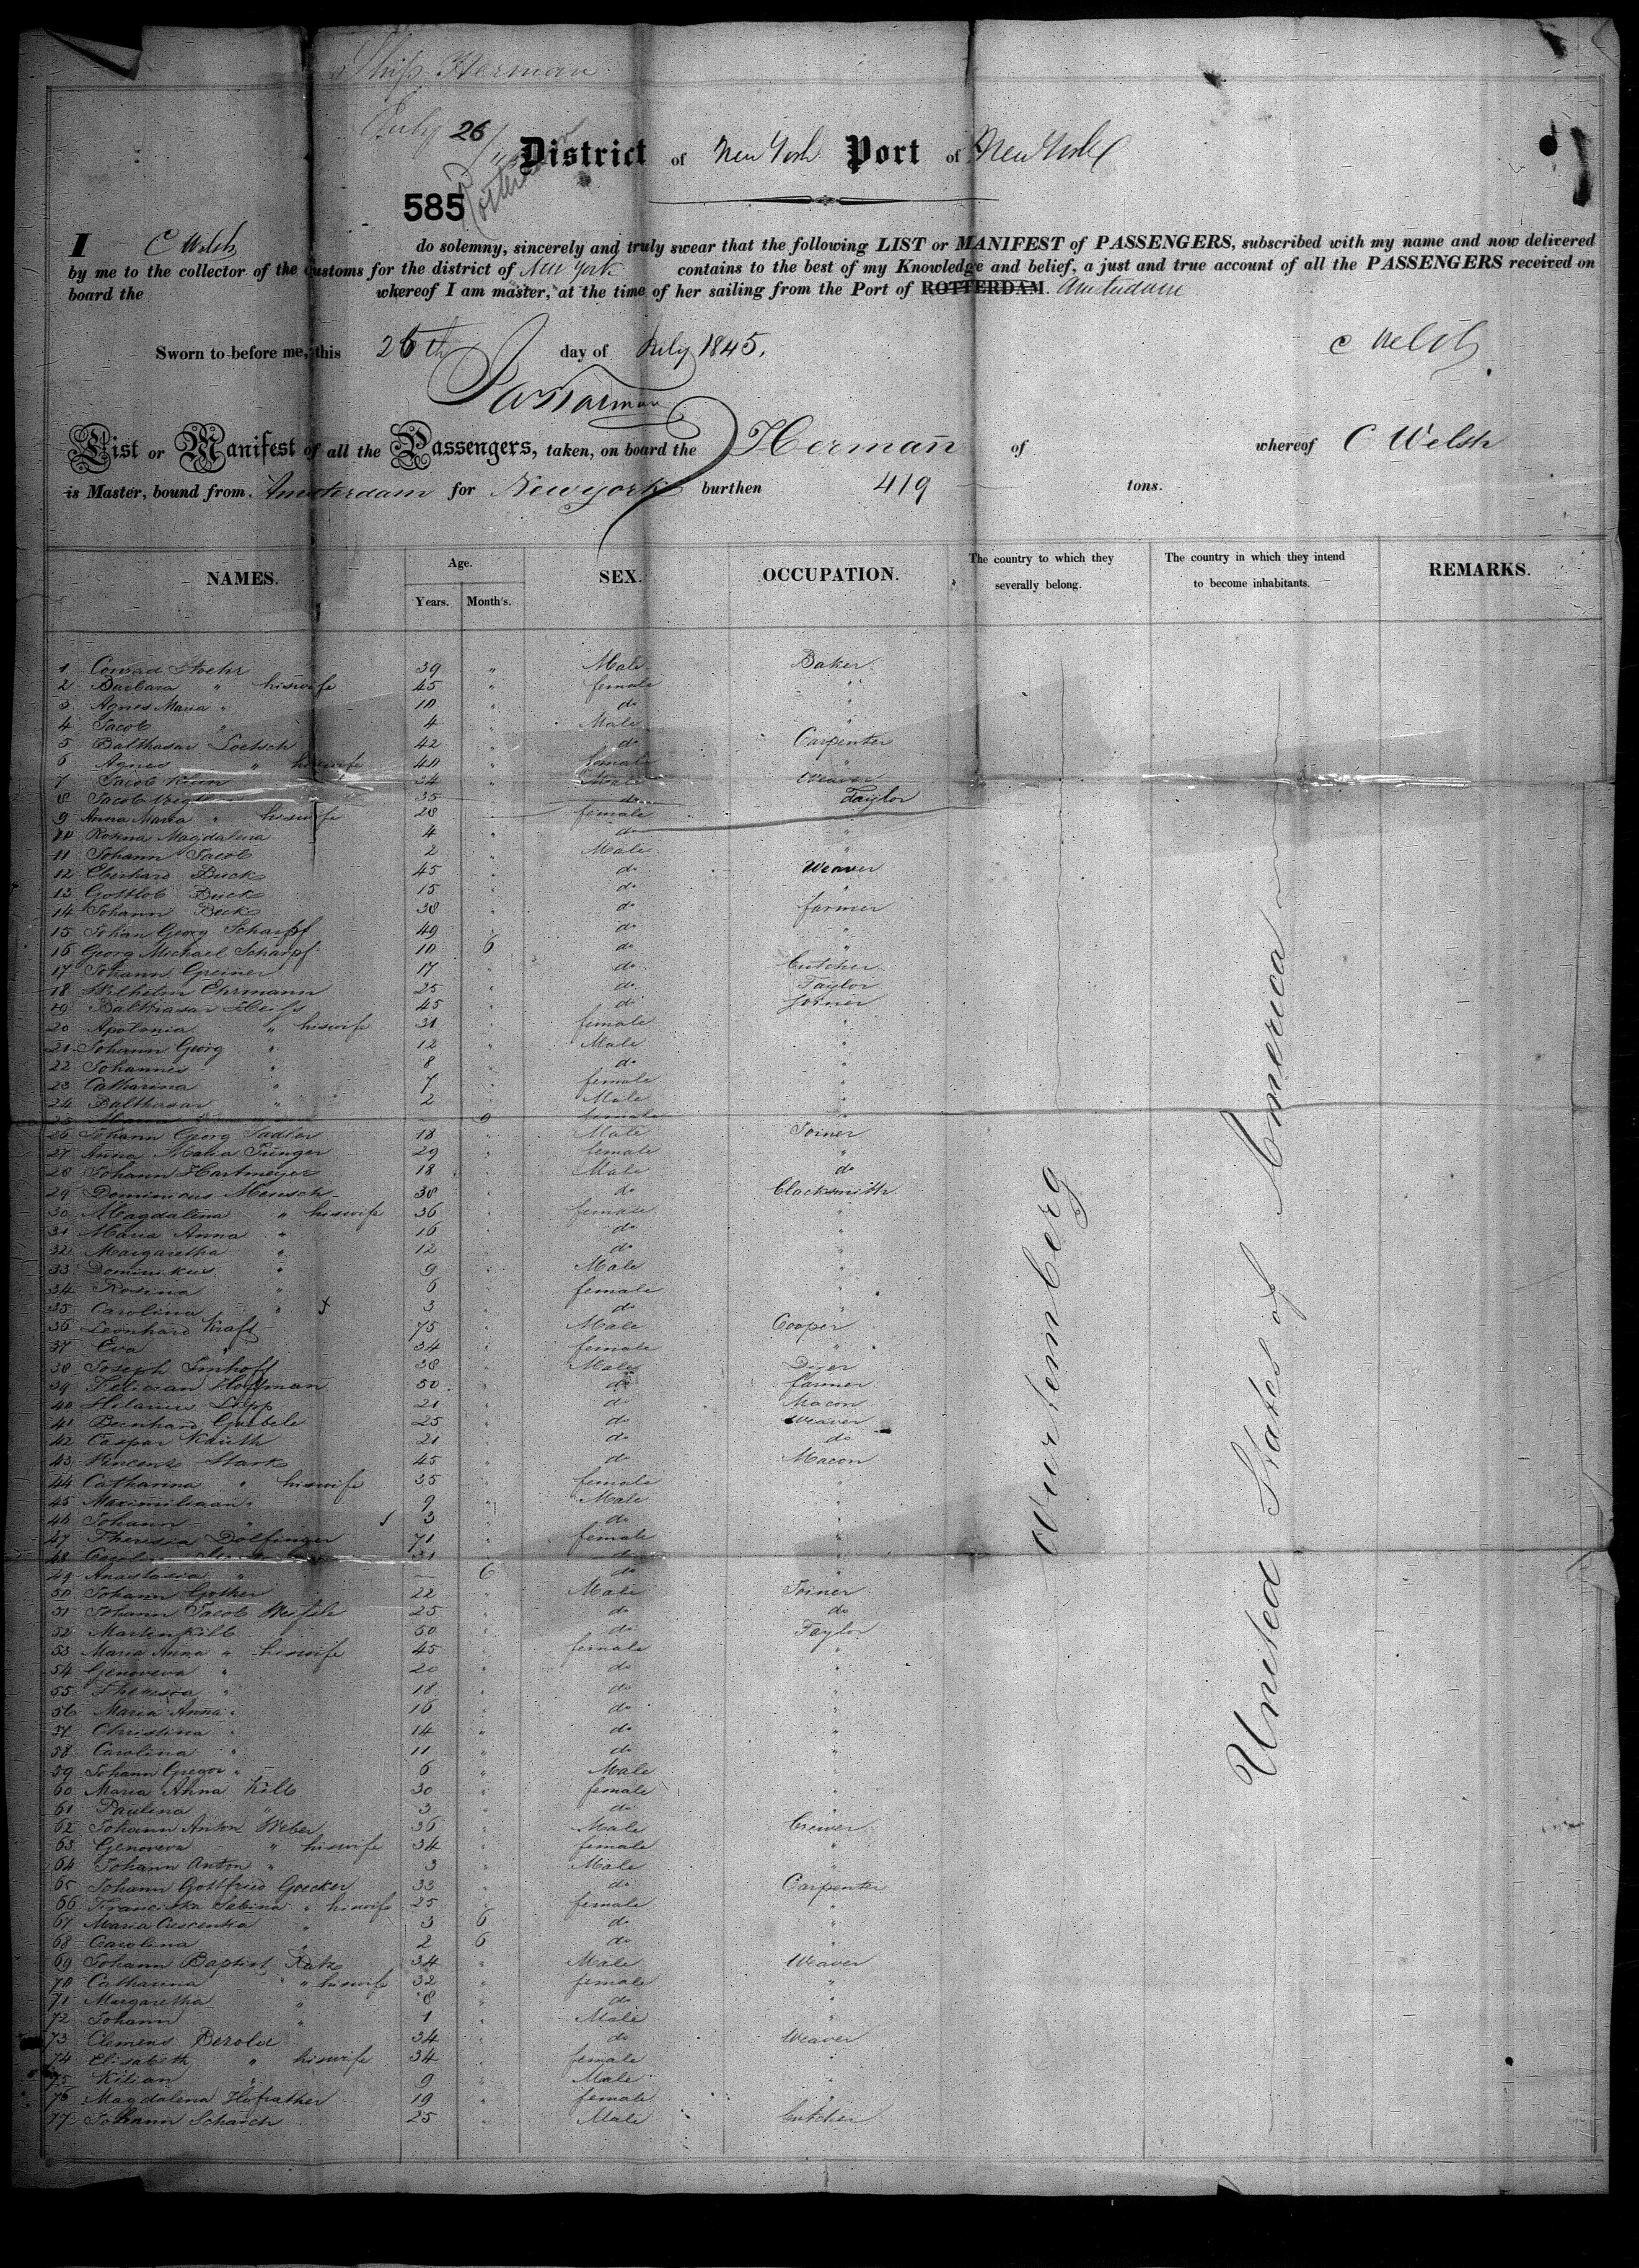 Ship Herman
July 26
District of New York Port of New York
Rotterdam
585
I C Welsh do solemny, sincerely and truly swear that the following LIST or MANIFEST of PASSENGERS, subscribed with my name and now delivered
by me to the collector of the customs for the district of New York contains to the best of my Knowledge and belief, a just and true account of all the PASSENGERS received on
board the whereof I am master, at the time of her sailing from the Port of ROTTERDAM. Amsterdam
Sworn to before me, this 26th day of July 1845. C Welsh
List or Manifest of all the Passengers, taken, on board the Hermann of whereof C Welsh
is Master, bound from Amsterdam for Newyork burthen 419 tons.
NAMES. Age. Years. Month's. SEX. OCCUPATION. The country to which they severally belong. The country in which they intend to become inhabitants. REMARKS.
1 Conrad Stoehr 39 " Male Baker
2 Barbara " hiswife 45 " female "
3 Agnes Maria " 10 " do "
4 Jacob " 4 " Male "
5 Balthasar Loetsch 42 " do Carpenter
6 Agnes " hiswife 40 " female "
7 Jacob Klein 34 " Male Weaver
8 Jacob 35 do Taylor
9 Anna Maria " hiswife 28 female
10 Rosina Magdalena 4 " do "
11 Johann Jacob 2 " Male "
12 Eberhard Buck 45 " do Weaver
13 Gottlob Buck 15 " do "
14 Johann Beck 38 " do farmer
15 Johan Georg Scharpf 49 " do "
16 Georg Michael Scharpf 10 6 do "
17 Johann Greiner 17 " do butcher
18 Wilhelm Ehrmann 25 " do Taylor
19 Balthasar Heiss 45 " do joiner
20 Apolonia " hiswife 31 " female "
21 Johann Georg " 12 " Male "
22 Johannes " 8 " do "
23 Catharina " 7 " female "
24 Balthasar " 2 " Male "
25 Maria female
26 Johann Georg Sadler 18 " Male Joiner
27 Anna Maria Junger 29 " female "
28 Johann Hartmeyer 18 " Male do
29 Dominicus Mensch 38 " do blacksmith
30 Magdalena " hiswife 36 " female "
31 Maria Anna " 16 " do "
32 Margaretha " 12 " do "
33 Dominikus " 9 " Male "
34 Rosina " 6 " female "
35 Carolina " 3 " do "
36 Leonhard Kraft 75 " Male Cooper
37 Eva " 34 " female "
38 Joseph Imhoff 38 " Male Dyer
39 Felician Hoffman 50 " do farmer
40 Hilarius Lipp 21 " do Macon
41 Bernhard Gaebele 25 " do Weaver
42 Caspar Kauth 21 " do do
43 Vincenz Stark 45 " do Macon
44 Catharina " hiswife 35 " female "
45 Maximiliaan " 9 " Male "
46 Johann " 3 " do "
47 Theresia Dolfinger 71 " female "
48 31 do
49 Anastasia " — 6 do "
50 Johann Gother 22 " Male Joiner
51 Johann Jacob Weifele 25 " do do
52 Martin Kilb 50 " do Taylor
53 Maria Anna " hiswife 45 " female "
54 Genoveva " 20 " do "
55 Theresia " 18 " do "
56 Maria Anna " 16 " do "
57 Christina " 14 " do "
58 Carolina " 11 " do "
59 Johann Gregor " 6 " Male "
60 Maria Anna Kilb 30 " female "
61 Paulina " 3 " do "
62 Johann Anton Weber 36 " Male brewer
63 Genoveva " hiswife 34 " female "
64 Johann Anton " 3 " Male "
65 Johann Gottfried Goecker 33 " do Carpenter
66 Franciska Sabina " hiswife 25 " female "
67 Maria Crescentia " 3 6 do "
68 Carolina " 2 6 do "
69 Johann Baptist Ratz 34 " Male Weaver
70 Catharina " hiswife 32 " female "
71 Margaretha " 8 " do "
72 Johann " 1 " Male "
73 Clemens Bezold 34 " do Weaver
74 Elisabeth " hiswife 34 " female "
75 Kilian " 9 " Male "
76 Magdalena Hofrather 19 " female "
77 Johann Scharch 25 " Male butcher
Wurtemberg
United States of America